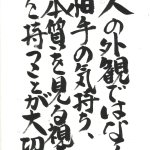 人の外観ではなく
相手の気持ち、
本質を見る視
を持つことが大切